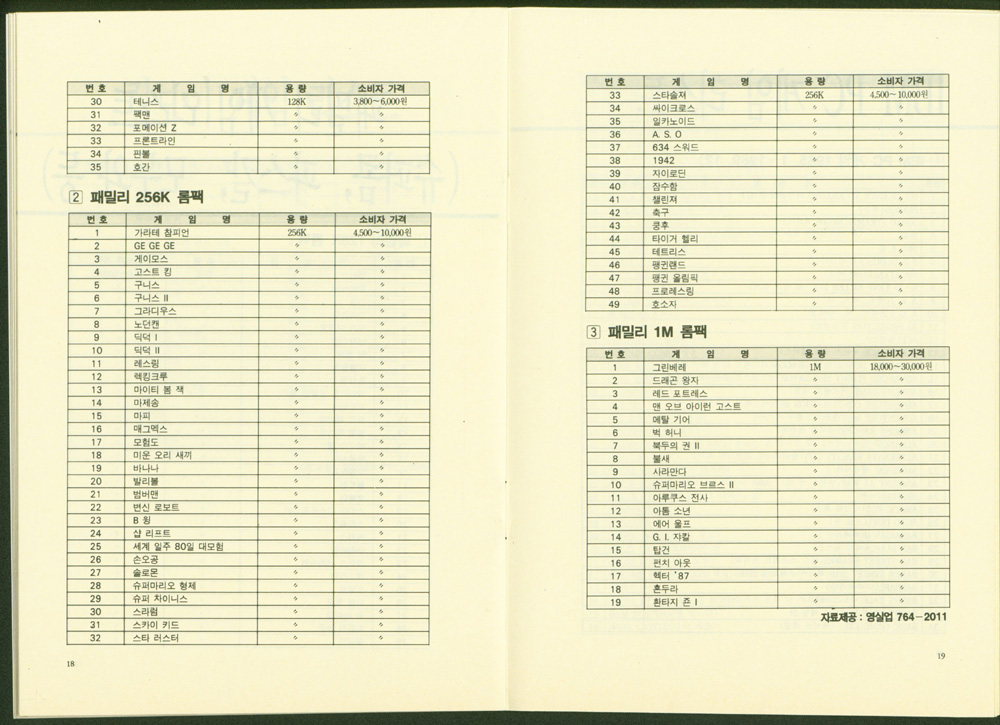 번호 게임명 용량 소비자 가격
30 테니스 128K 3,800~6,000원
31 팩맨 〃 〃
32 포메이션 Z 〃 〃
33 프론트라인 〃 〃
34 핀볼 〃 〃
35 호간 〃 〃
2 패밀리 256K 롬팩
번호 게임명 용량 소비자 가격
1 가라테 참피언 256K 4,500~10,000원
2 GE GE GE 〃 〃
3 게이모스 〃 〃
4 고스트 킹 〃 〃
5 구니스 〃 〃
6 구니스 II 〃 〃
7 그라디우스 〃 〃
8 노던캔 〃 〃
9 딕덕 I 〃 〃
10 딕덕 II 〃 〃
11 레스링 〃 〃
12 렉킹크루 〃 〃
13 마이티 봄 잭 〃 〃
14 마제송 〃 〃
15 마피 〃 〃
16 매그멕스 〃 〃
17 모험도 〃 〃
18 미운 오리 새끼 〃 〃
19 바나나 〃 〃
20 발리볼 〃 〃
21 범버맨 〃 〃
22 변신 로보트 〃 〃
23 B 윙 〃 〃
24 샵 리프트 〃 〃
25 세계 일주 80일 대모험 〃 〃
26 손오공 〃 〃
27 솔로몬 〃 〃
28 슈퍼마리오 형제 〃 〃
29 슈퍼 차이니스 〃 〃
30 스라럼 〃 〃
31 스카이 키드 〃 〃
32 스타 러스터 〃 〃
18
번호 게임명 용량 소비자 가격
33 스타솔져 256K 4,500~10,000원
34 싸이크로스 〃 〃
35 일카노이드 〃 〃
36 A. S. O 〃 〃
37 634 스워드 〃 〃
38 1942 〃 〃
39 자이로딘 〃 〃
40 잠수함 〃 〃
41 챌린져 〃 〃
42 축구 〃 〃
43 쿵후 〃 〃
44 타이거 헬리 〃 〃
45 테트리스 〃 〃
46 팽귄랜드 〃 〃
47 팽귄 올림픽 〃 〃
48 프로레스링 〃 〃
49 호소자 〃 〃
3 패밀리 1M 롬팩
번호 게임명 용량 소비자 가격
1 그린베레 1M 18,000~30,000원
2 드래곤 왕자 〃 〃
3 레드 포트레스 〃 〃
4 맨 오브 아이런 고스트 〃 〃
5 메탈 기어 〃 〃
6 벅 허니 〃 〃
7 북두의 권 II 〃 〃
8 불새 〃 〃
9 사라만다 〃 〃
10 슈퍼마리오 브르스 II 〃 〃
11 아루쿠스 전사 〃 〃
12 아톰 소년 〃 〃
13 에어 울프 〃 〃
14 G. I. 쟈칼 〃 〃
15 탑건 〃 〃
16 펀치 아웃 〃 〃
17 헥터 '87 〃 〃
18 혼두라 〃 〃
19 환타지 죤 I 〃 〃
자료제공 : 영실업 764-2011
19